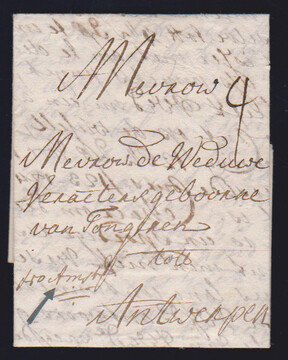 A Mevrow 4
Mevrow de Weduwe
Veraetens geboorne
van Tongeren
tott
Antwerpen